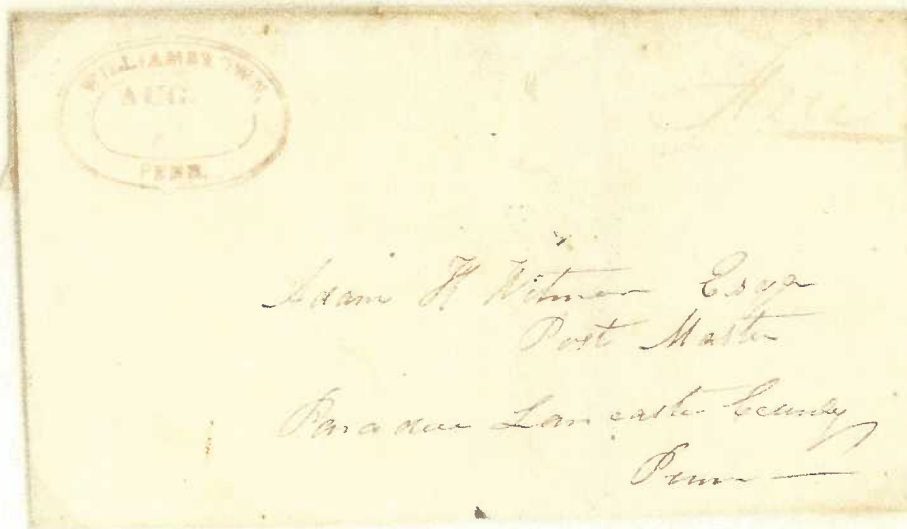 WILLIAMSTOWN.
AUG.
PENN.
Free
Adam K Witmer Esqr
Post Master
Paradise Lancaster County
Penn